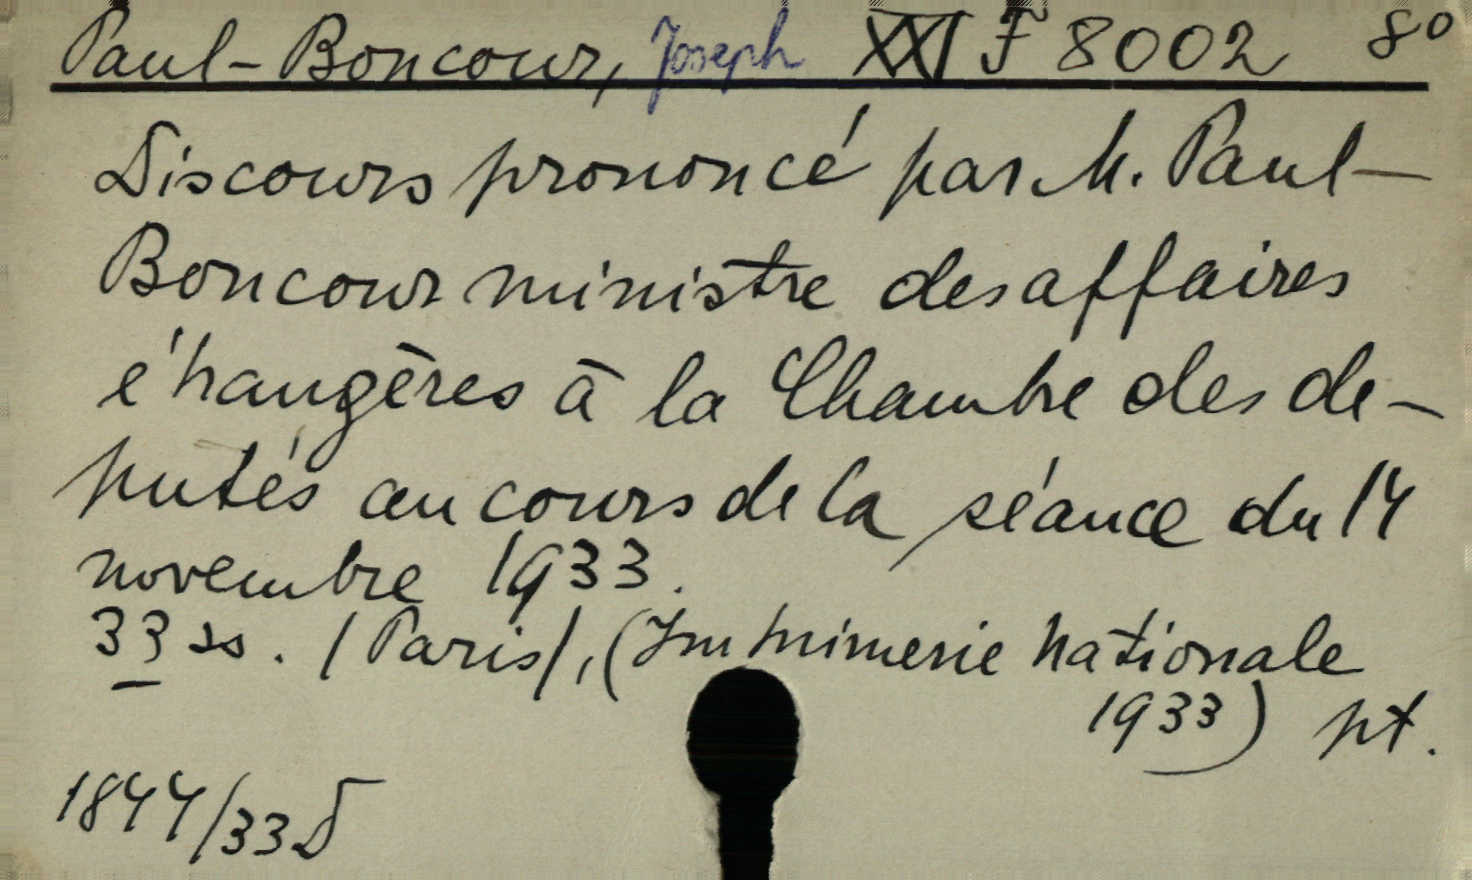 Paul-Boncour, Joseph XXI F 8002 8°
Discours prononcé par M. Paul-
Boncour ministre des affaires
étrangères à la Chambre des de-
putés au cours de la séance du 14
novembre 1933.
33 ss. /Paris/, (Imprimerie Nationale
1933) pt.
1844/33 D